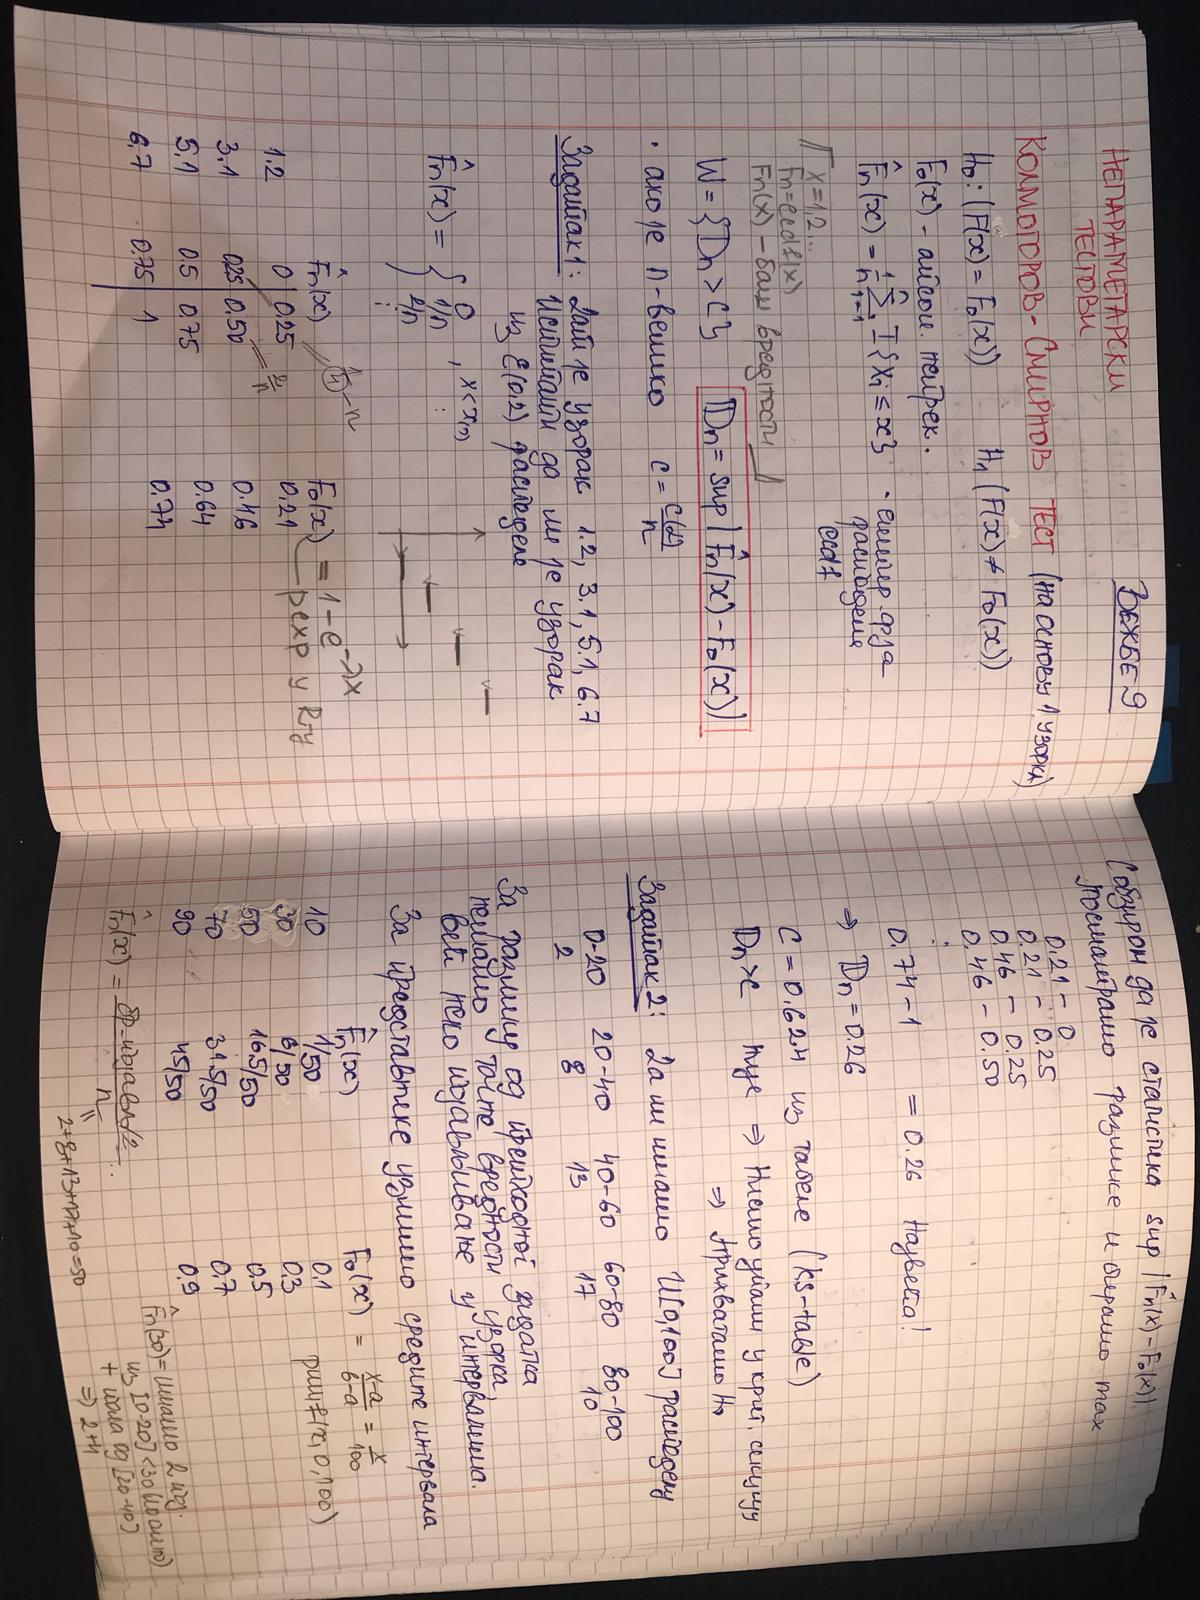 ВЕЖБЕ 9
НЕПАРАМЕТАРСКИ
ТЕСТОВИ
КОЛМОГОРОВ-СМИРНОВ ТЕСТ (на основу 1 узорка)
H₀: (F(x) = F₀(x)) H₁ (F(x) ≠ F₀(x))
F₀(x) - апсол. непрек.
F̂n(x) = 1/n Σ I{Xi ≤ x} • емпир. ф-ја
расподеле
ecdf
x=1,2...
Fn=ecdf(x)
Fn(x) - баш вредности
W = {Dn > C} Dn = sup | F̂n(x) - F₀(x) |
• ако је n-велико c = c(α)/n
Задатак 1: Дат је узорак 1.2, 3.1, 5.1, 6.7
Испитати да ли је узорак
из Ɛ(0.2) расподеле
F̂n(x) = { 0 , x < x(1)
1/n
2/n
⋮
F̂n(x) F₀(x) = 1 - e^-λx
1.2 0 0.25 0.21 pexp у R-у
3.1 0.25 0.50 = 2/n 0.46
5.1 0.5 0.75 0.64
6.7 0.75 1 0.74
(обзиром да је статистика sup | F̂n(x) - F₀(x) |
посматрамо разлике и бирамо max
0.21 - 0
0.21 - 0.25
0.46 - 0.25
0.46 - 0.50
⋮
0.74 - 1 = 0.26 Највећа!
⇒ Dn = 0.26
C = 0.624 из табеле (ks-table)
Dn > c није ⇒ Нисмо упали у крит. секцију
⇒ прихватамо H₀
Задатак 2: Да ли имамо U[0,100] расподелу
0-20 20-40 40-60 60-80 80-100
2 8 13 17 10
За разлику од претходног задатка
немамо тачне вредности узорка
већ неко појављивање у интервалима.
За представнике узимамо средине интервала
F̂n(x) F₀(x) = x-a/b-a = x/100
10 1/50 0.1 punif(x,0,100)
30 6/50 0.3
50 16.5/50 0.5
70 31.5/50 0.7
90 45/50 0.9
2+8+13+17+10=50